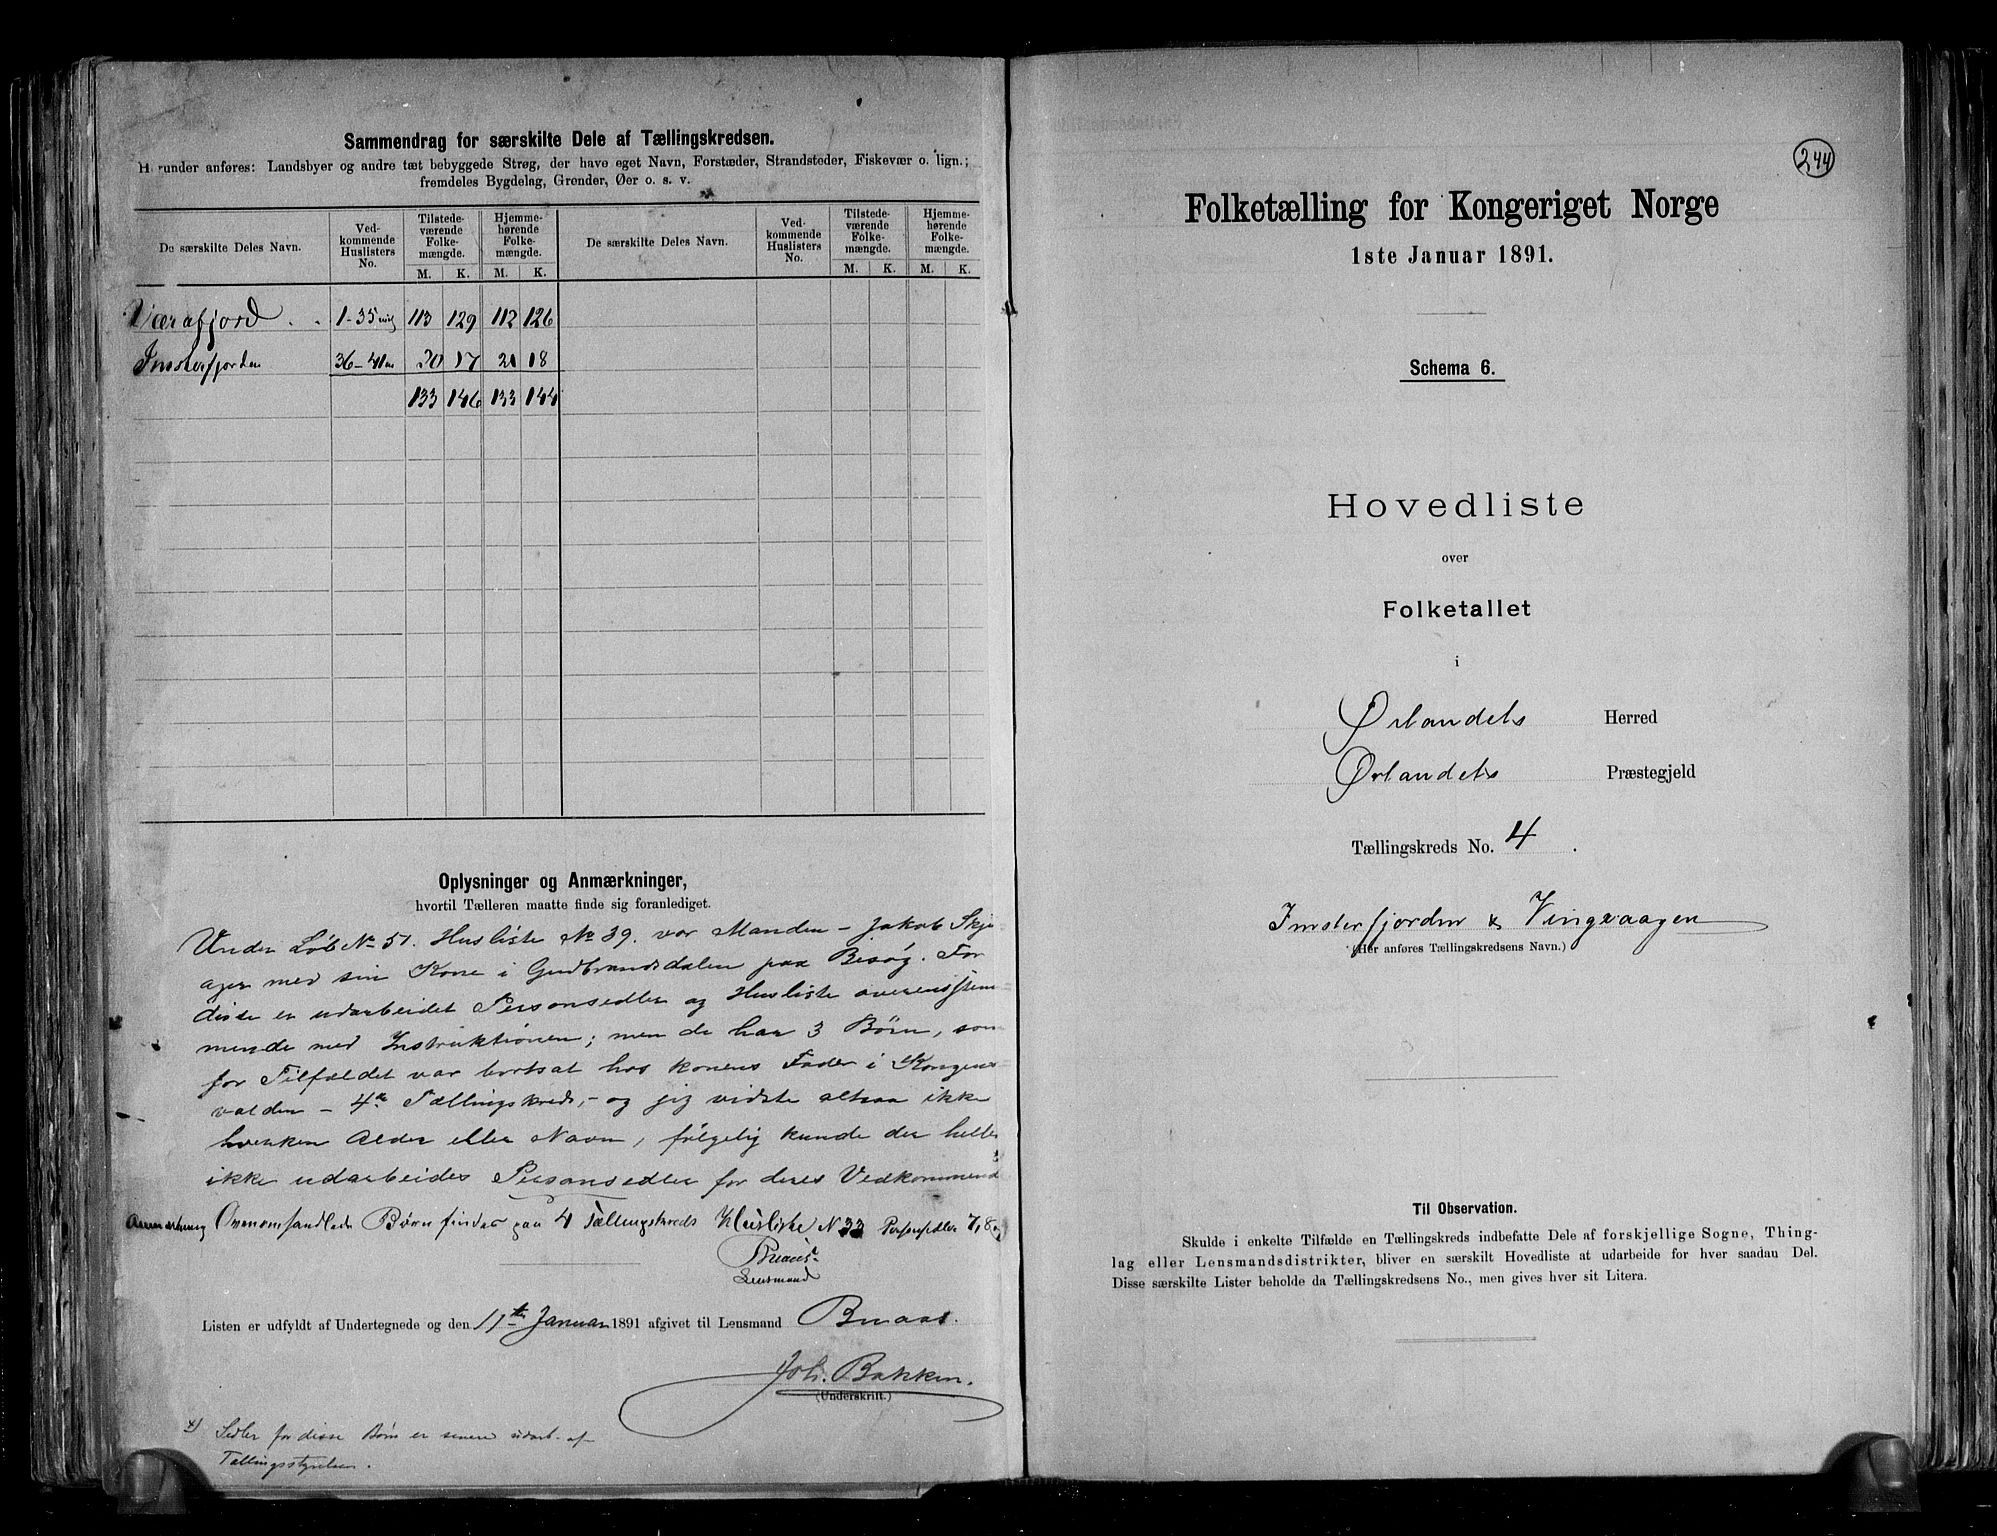 Sammendrag for særskilte Dele af Tællingskredsen.
Herunder anføres: Landsbyer og andre tæt bebyggede Strøg, der have eget Navn, Forstæder, Strandsteder, Fiskevær o. lign.;
fremdeles Bygdelag, Grender, Øer o. s. v.
De særskilte Deles Navn. Ved-kommende Huslisters No. Tilstede-værende Folke-mængde. M. K. Hjemme-hørende Folke-mængde. M. K. De særskilte Deles Navn. Ved-kommende Huslisters No. Tilstede-værende Folke-mængde. M. K. Hjemme-hørende Folke-mængde. M. K.
Værafjord . . 1-35 113 129 112 126
Imsterfjorden 36-41 20 17 21 18
133 146 133 144
Oplysninger og Anmærkninger,
hvortil Tælleren maatte finde sig foranlediget.
Under Løb No 51. Husliste No 39. var Manden - Jakob Skje
ager med sin Kone i Gudbrandsdalen paa Besøg. For
disse er udarbeidet Personsedler og Husliste overensstem
mende med Instruktionen; men de har 3 Børn, som
for Tilfældet var bortsat hos konens Fader i Kongens
valden - 4de Tællingskreds, - og jeg vidste altsaa ikke
hverken Alder eller Navn, følgelig kunde der heller
ikke udarbeides Personsedler for deres Vedkommende
Anmærkning Ovenomhandlede Børn findes paa 4 Tællingskreds Husliste N 33 Personsedler 7, 8
Lensmand
Listen er udfyldt af Undertegnede og den 11te Januar 1891 afgivet til Lensmand Bmaas.
Joh. Bakken.
(Underskrift.)
x) Sedler for disse Børn er senere udarb. af
Tællingsstyrelsen.
244
Folketælling for Kongeriget Norge
1ste Januar 1891.
Schema 6.
Hovedliste
over
Folketallet
i
Ørlandets Herred
Ørlandets Præstegjeld
Tællingskreds No. 4 .
Imsterfjorden & Vingvaagen
(Her anføres Tællingskredsens Navn.)
Til Observation.
Skulde i enkelte Tilfælde en Tællingskreds indbefatte Dele af forskjellige Sogne, Thing-
lag eller Lensmandsdistrikter, bliver en særskilt Hovedliste at udarbeide for hver saadan Del.
Disse særskilte Lister beholde da Tællingskredsens No., men gives hver sit Litera.